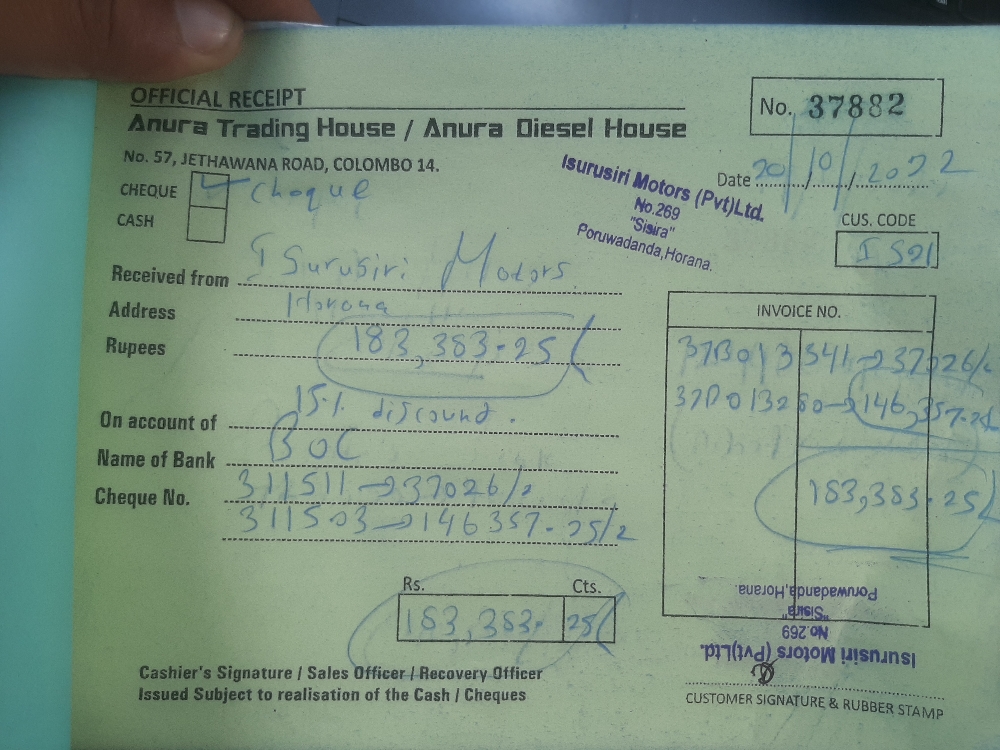 OFFICIAL RECEIPT
No. 37882
Anura Trading House / Anura Diesel House
No. 57, JETHAWANA ROAD, COLOMBO 14.
Isurusiri Motors (Pvt)Ltd.
No.269
"Sisira"
Poruwadanda,Horana.
Date 20/10/2022
CHEQUE Cheque
CASH
CUS. CODE
IS21
Received from Isurusiri Motors
Address Horana
Rupees 183,383.25
On account of 15% discount.
Name of Bank BOC
Cheque No. 311511→37026/=
311503→146357.25/=
INVOICE NO.
37B013541→37026/=
146,357.25
183,383.25
Rs. Cts.
183,383. 25
Isurusiri Motors (Pvt)Ltd.
No.269
"Sisira"
Poruwadanda,Horana.
Cashier's Signature / Sales Officer / Recovery Officer
Issued Subject to realisation of the Cash / Cheques
CUSTOMER SIGNATURE & RUBBER STAMP